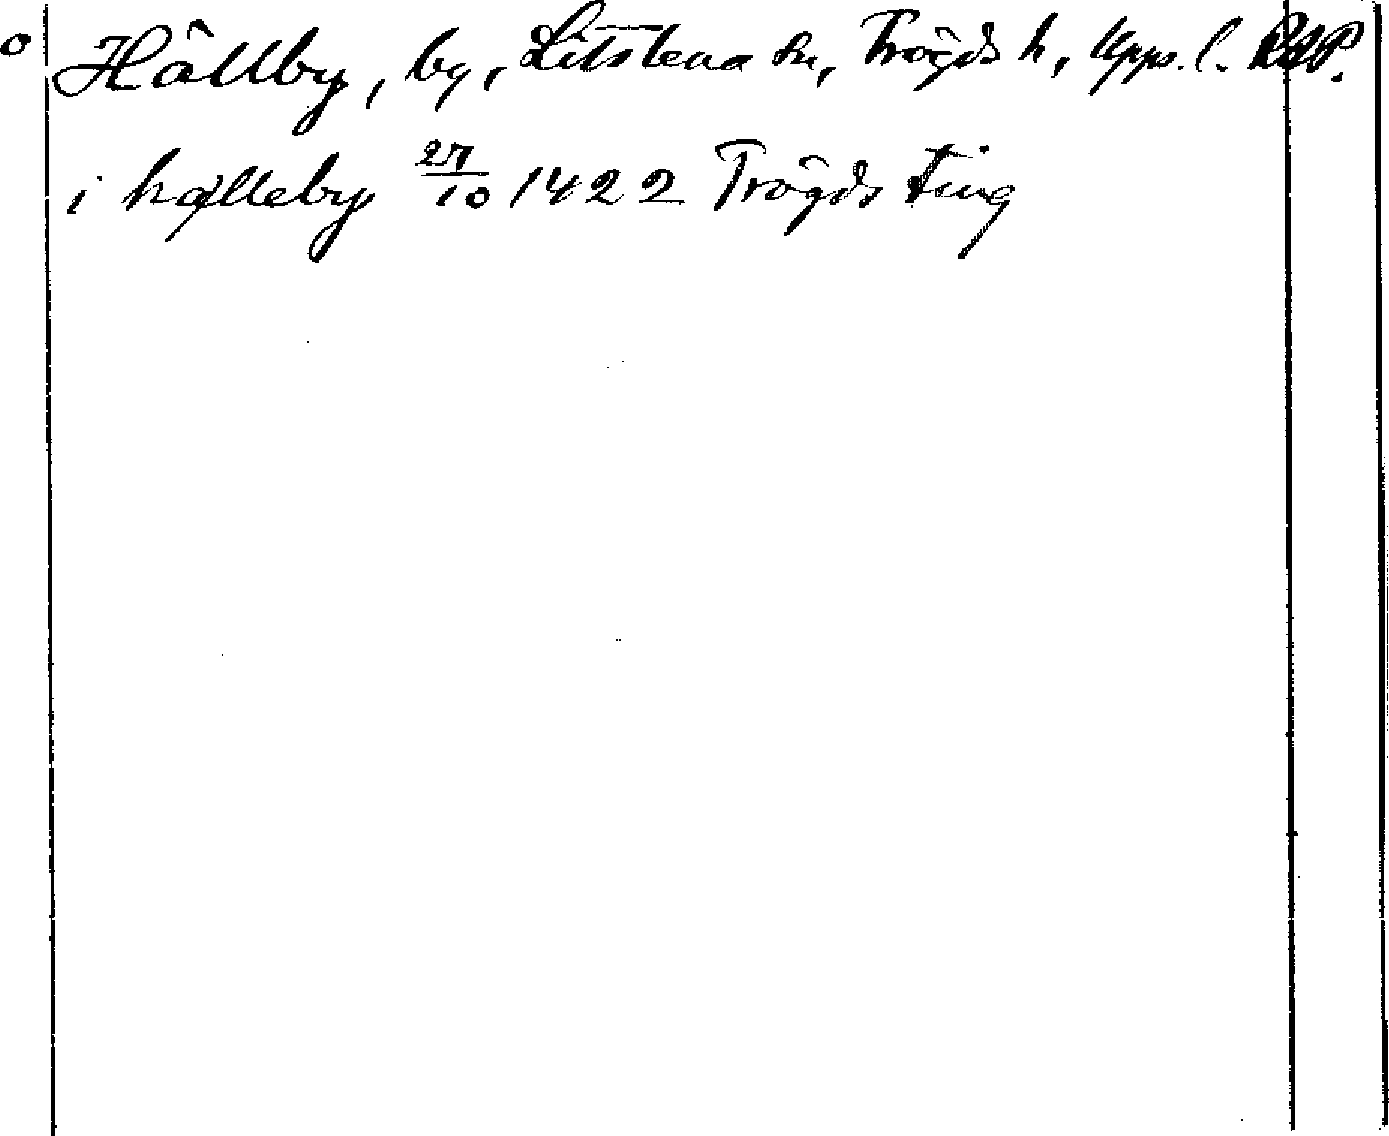 o Hällby, by, Litslena sn, Trögds h, Upps. l. RAP.
i hælleby 27/10 1422 Trögds ting